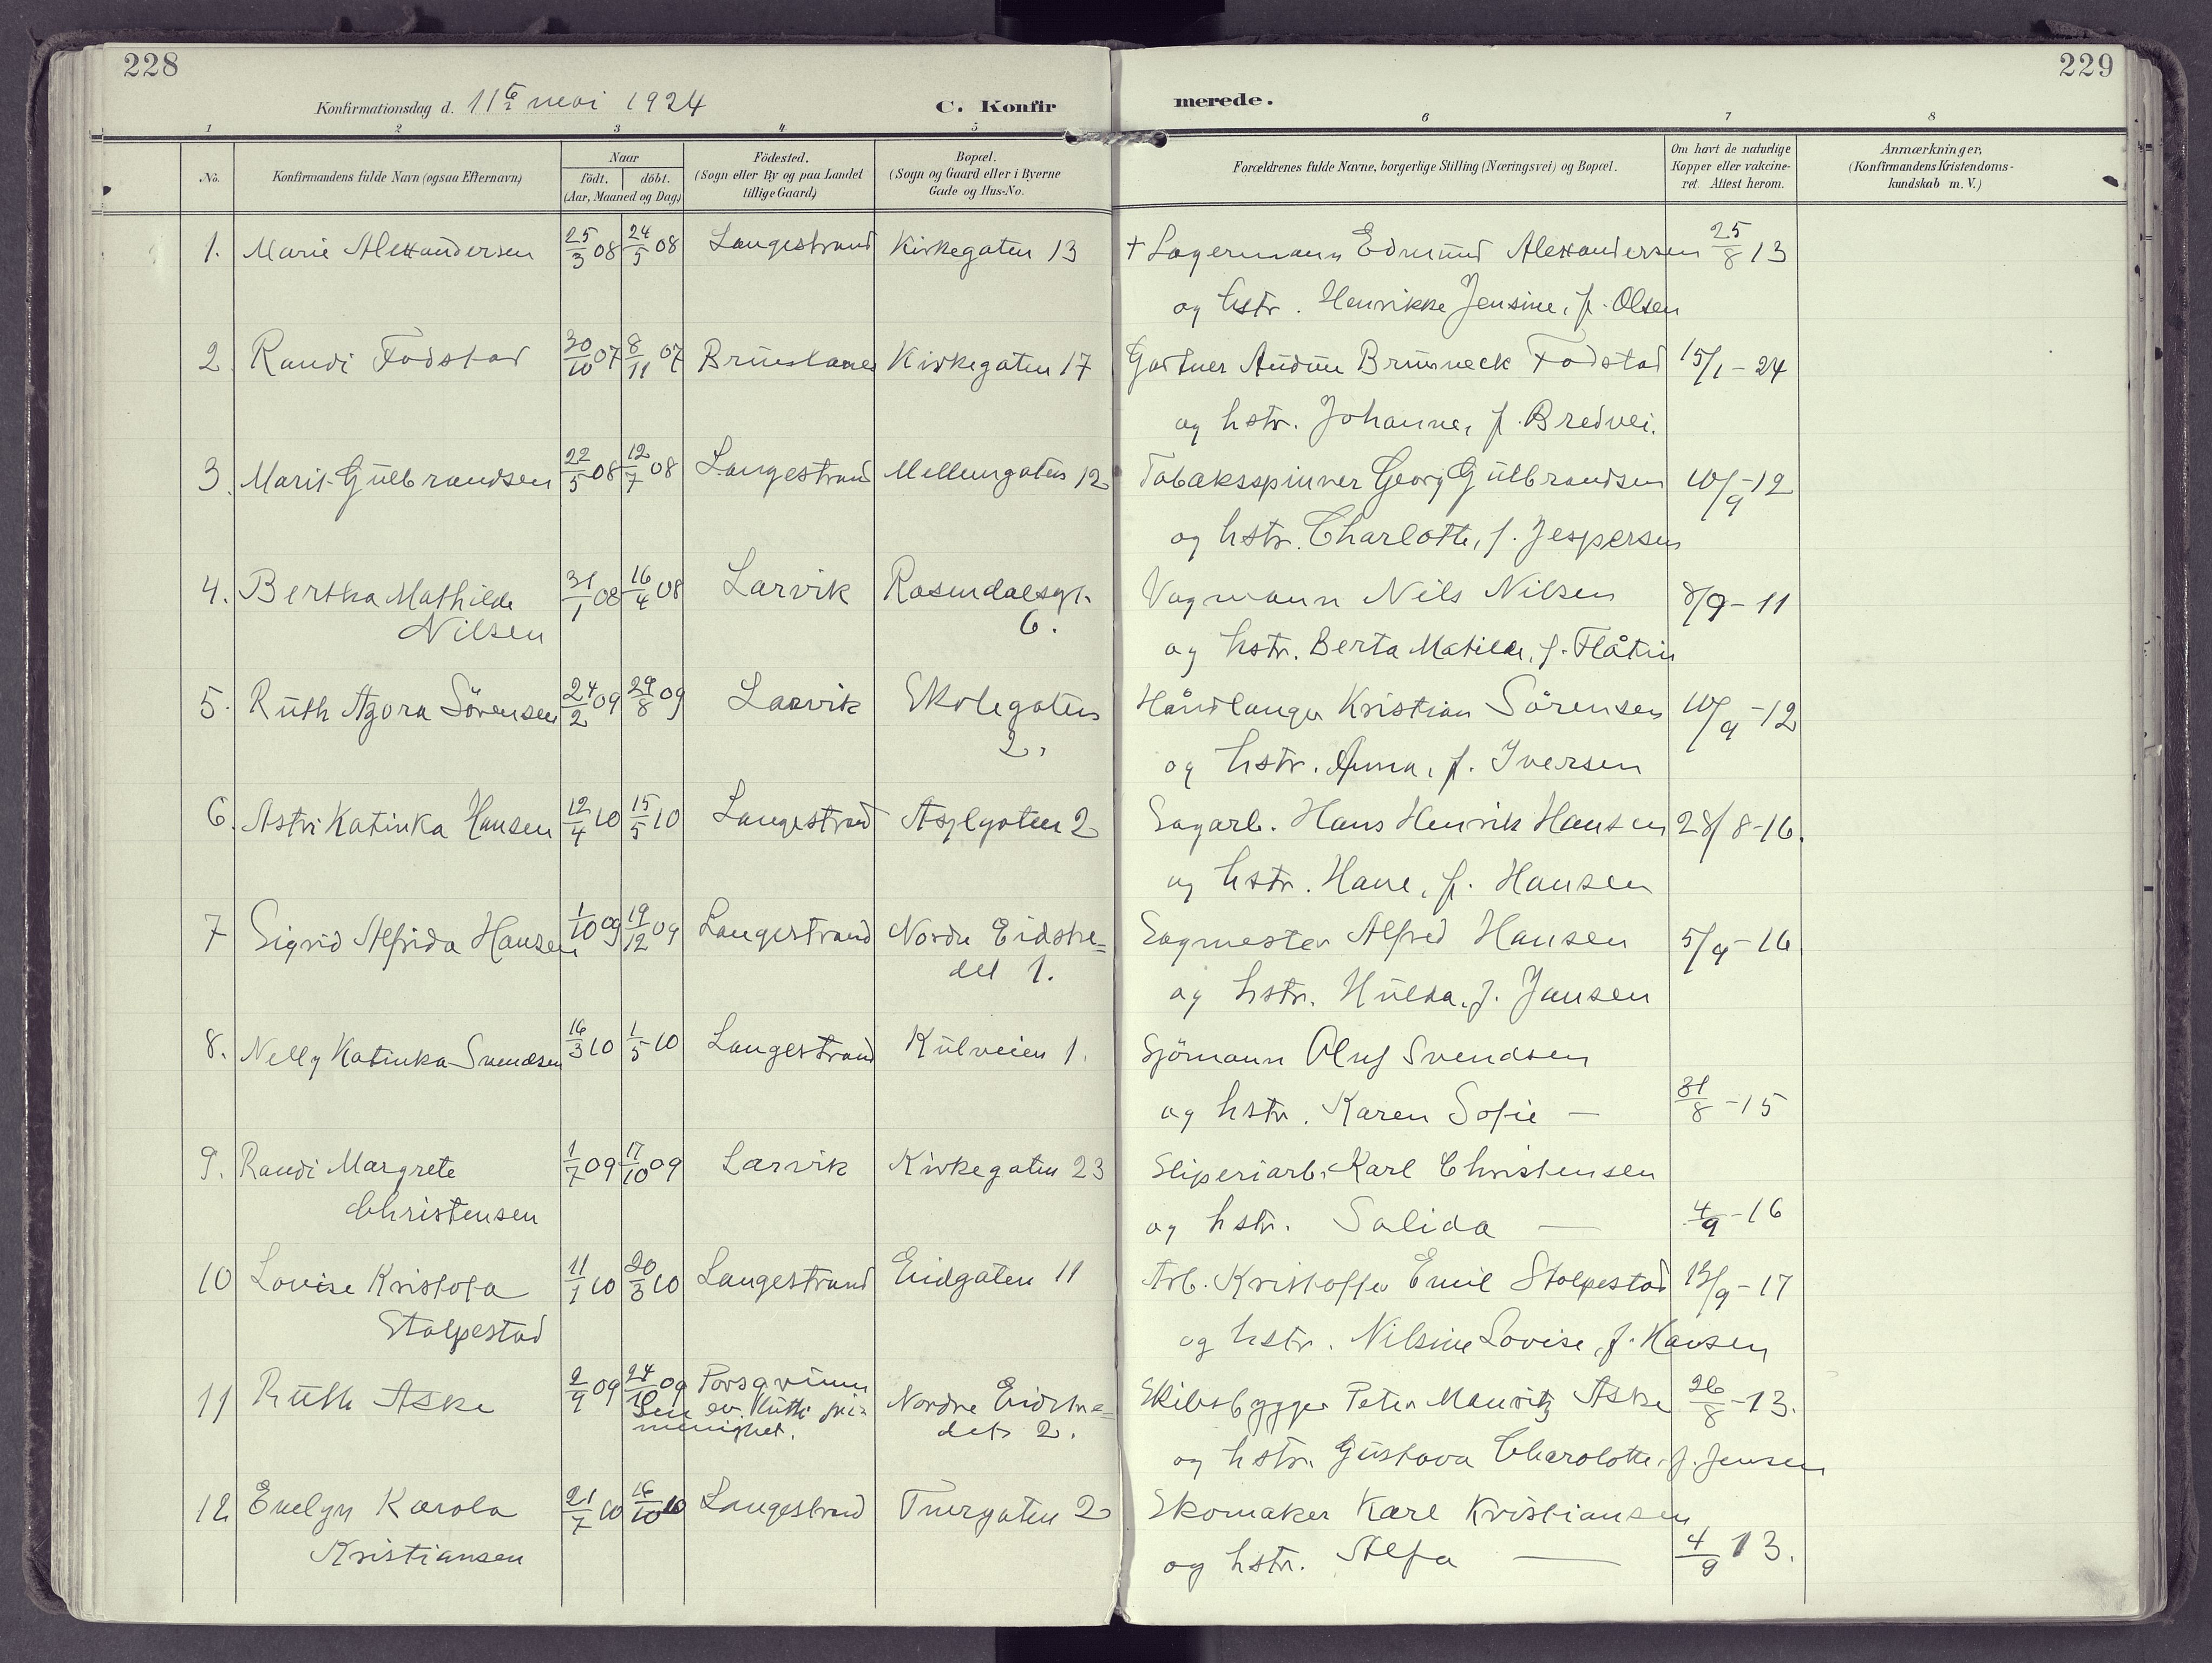 228
229
Konfirmationsdag d. 11te mai 1924
C. Konfirmerede.
1 2 3 4 5 6 7 8
No.
Konfirmandens fulde Navn (ogsaa Efternavn)
Naar
födt. döbt.
(Aar, Maaned og Dag)
Födested.
(Sogn eller By og paa Landet
tillige Gaard)
Bopæl.
(Sogn og Gaard eller i Byerne
Gade og Hus-No.
Forældrenes fulde Navne, borgerlige Stilling (Næringsvei) og Bopæl.
Om havt de naturlige
Kopper eller vakcine-
ret. Attest herom.
Anmærkninger,
(Konfirmandens Kristendoms-
kundskab m. V.)
1. Marie Alexandersen 25/3 08 24/5 08 Langestrand Kirkegaten 13 + Lagermann Edmund Alexandersen 25/8 13
og hstr. Henrikke Jensine, f. Olsen
2. Randi Fodstad 30/10 07 8/11 07 Brunlanes Kirkegaten 17 Gartner Audun Brunneck Fodstad 15/1-24
og hstr. Johanne, f. Bredvei.
3. Marit Gulbrandsen 22/5 08 12/7 08 Langestrand Mellemgaten 12 Tobaksspinner Georg Gulbrandsen 10/9-12
og hstr. Charlotte, f. Jespersen
4. Bertha Mathilde 31/1 08 16/4 08 Larvik Rosendalsgt. Vognmann Nils Nilsen 8/9-11
Nilsen 6.
og hstr. Berta Matilde, f. Flåtin
5. Ruth Agora Sörensen 24/2 09 29/8 09 Larvik Skolegaten Håndlanger Kristian Sörensen 10/9-12
2.
og hstr. Anna, f. Iversen
6. Astri Katinka Hansen 12/4 10 15/5 10 Langestrand Asylgaten 2 Sagarb. Hans Henrik Hansen 28/8-16.
og hstr. Hane, f. Hansen
7 Sigrid Alfrida Hansen 1/10 09 19/12 09 Langestrand Nordre Eidstre= Sagmester Alfred Hansen 5/9-16
det 1.
og hstr. Hulda, f. Jansen
8. Nelly Katinka Svendsen 16/3 10 1/5 10 Langestrand Kulveien 1. Sjömann Oluf Svendsen
og hstr. Karen Sofie — 31/8-15
9. Randi Margrete 1/7 09 17/10 09 Larvik Kirkegaten 23 Sliperiarb. Karl Christensen
Christensen
og hstr. Salida — 4/9-16
10 Lovise Kristofa 11/1 10 20/3 10 Langestrand Eidgaten 11 Arb. Kristoffer Emil Stolpestad 13/9-17
Stolpestad
og hstr. Nilsine Lovise, f. Hansen
11 Ruth Aske 2/9 09 24/10 09 Porsgrunn Nordre Eidstre= Skibsbygger Peter Mauritz Aske 26/8-13.
Den ev. luth. fri=
menighet. det 2.
og hstr. Gustava Charolotte, f. Jensen
12 Evelyn Karola 21/7 10 16/10 10 Langestrand Tverrgaten 2 Skomaker Karl Kristiansen
Kristiansen
og hstr. Alfa — 4/9 13.